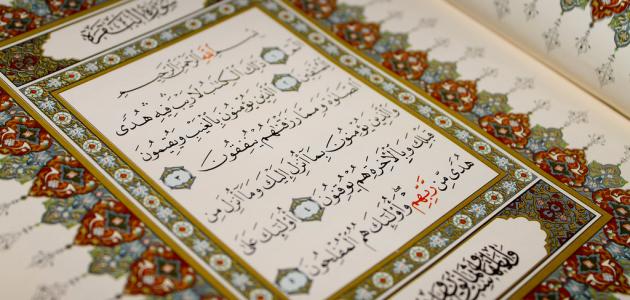 سُورَةُ الْبَقَرَةِ
بِسْمِ اللَّهِ الرَّحْمَٰنِ الرَّحِيمِ
الٓمٓ ١ ذَٰلِكَ الْكِتَٰبُ لَا رَيْبَ فِيهِ هُدًى
لِلْمُتَّقِينَ ٢ الَّذِينَ يُؤْمِنُونَ بِالْغَيْبِ وَيُقِيمُونَ
الصَّلَوٰةَ وَمِمَّا رَزَقْنَٰهُمْ يُنْفِقُونَ ٣
وَالَّذِينَ يُؤْمِنُونَ بِمَا أُنْزِلَ إِلَيْكَ وَمَا أُنْزِلَ مِنْ
قَبْلِكَ وَبِالْآخِرَةِ هُمْ يُوقِنُونَ ٤ أُولَٰئِكَ عَلَىٰ
هُدًى مِنْ رَبِّهِمْ وَأُولَٰئِكَ هُمُ الْمُفْلِحُونَ ٥